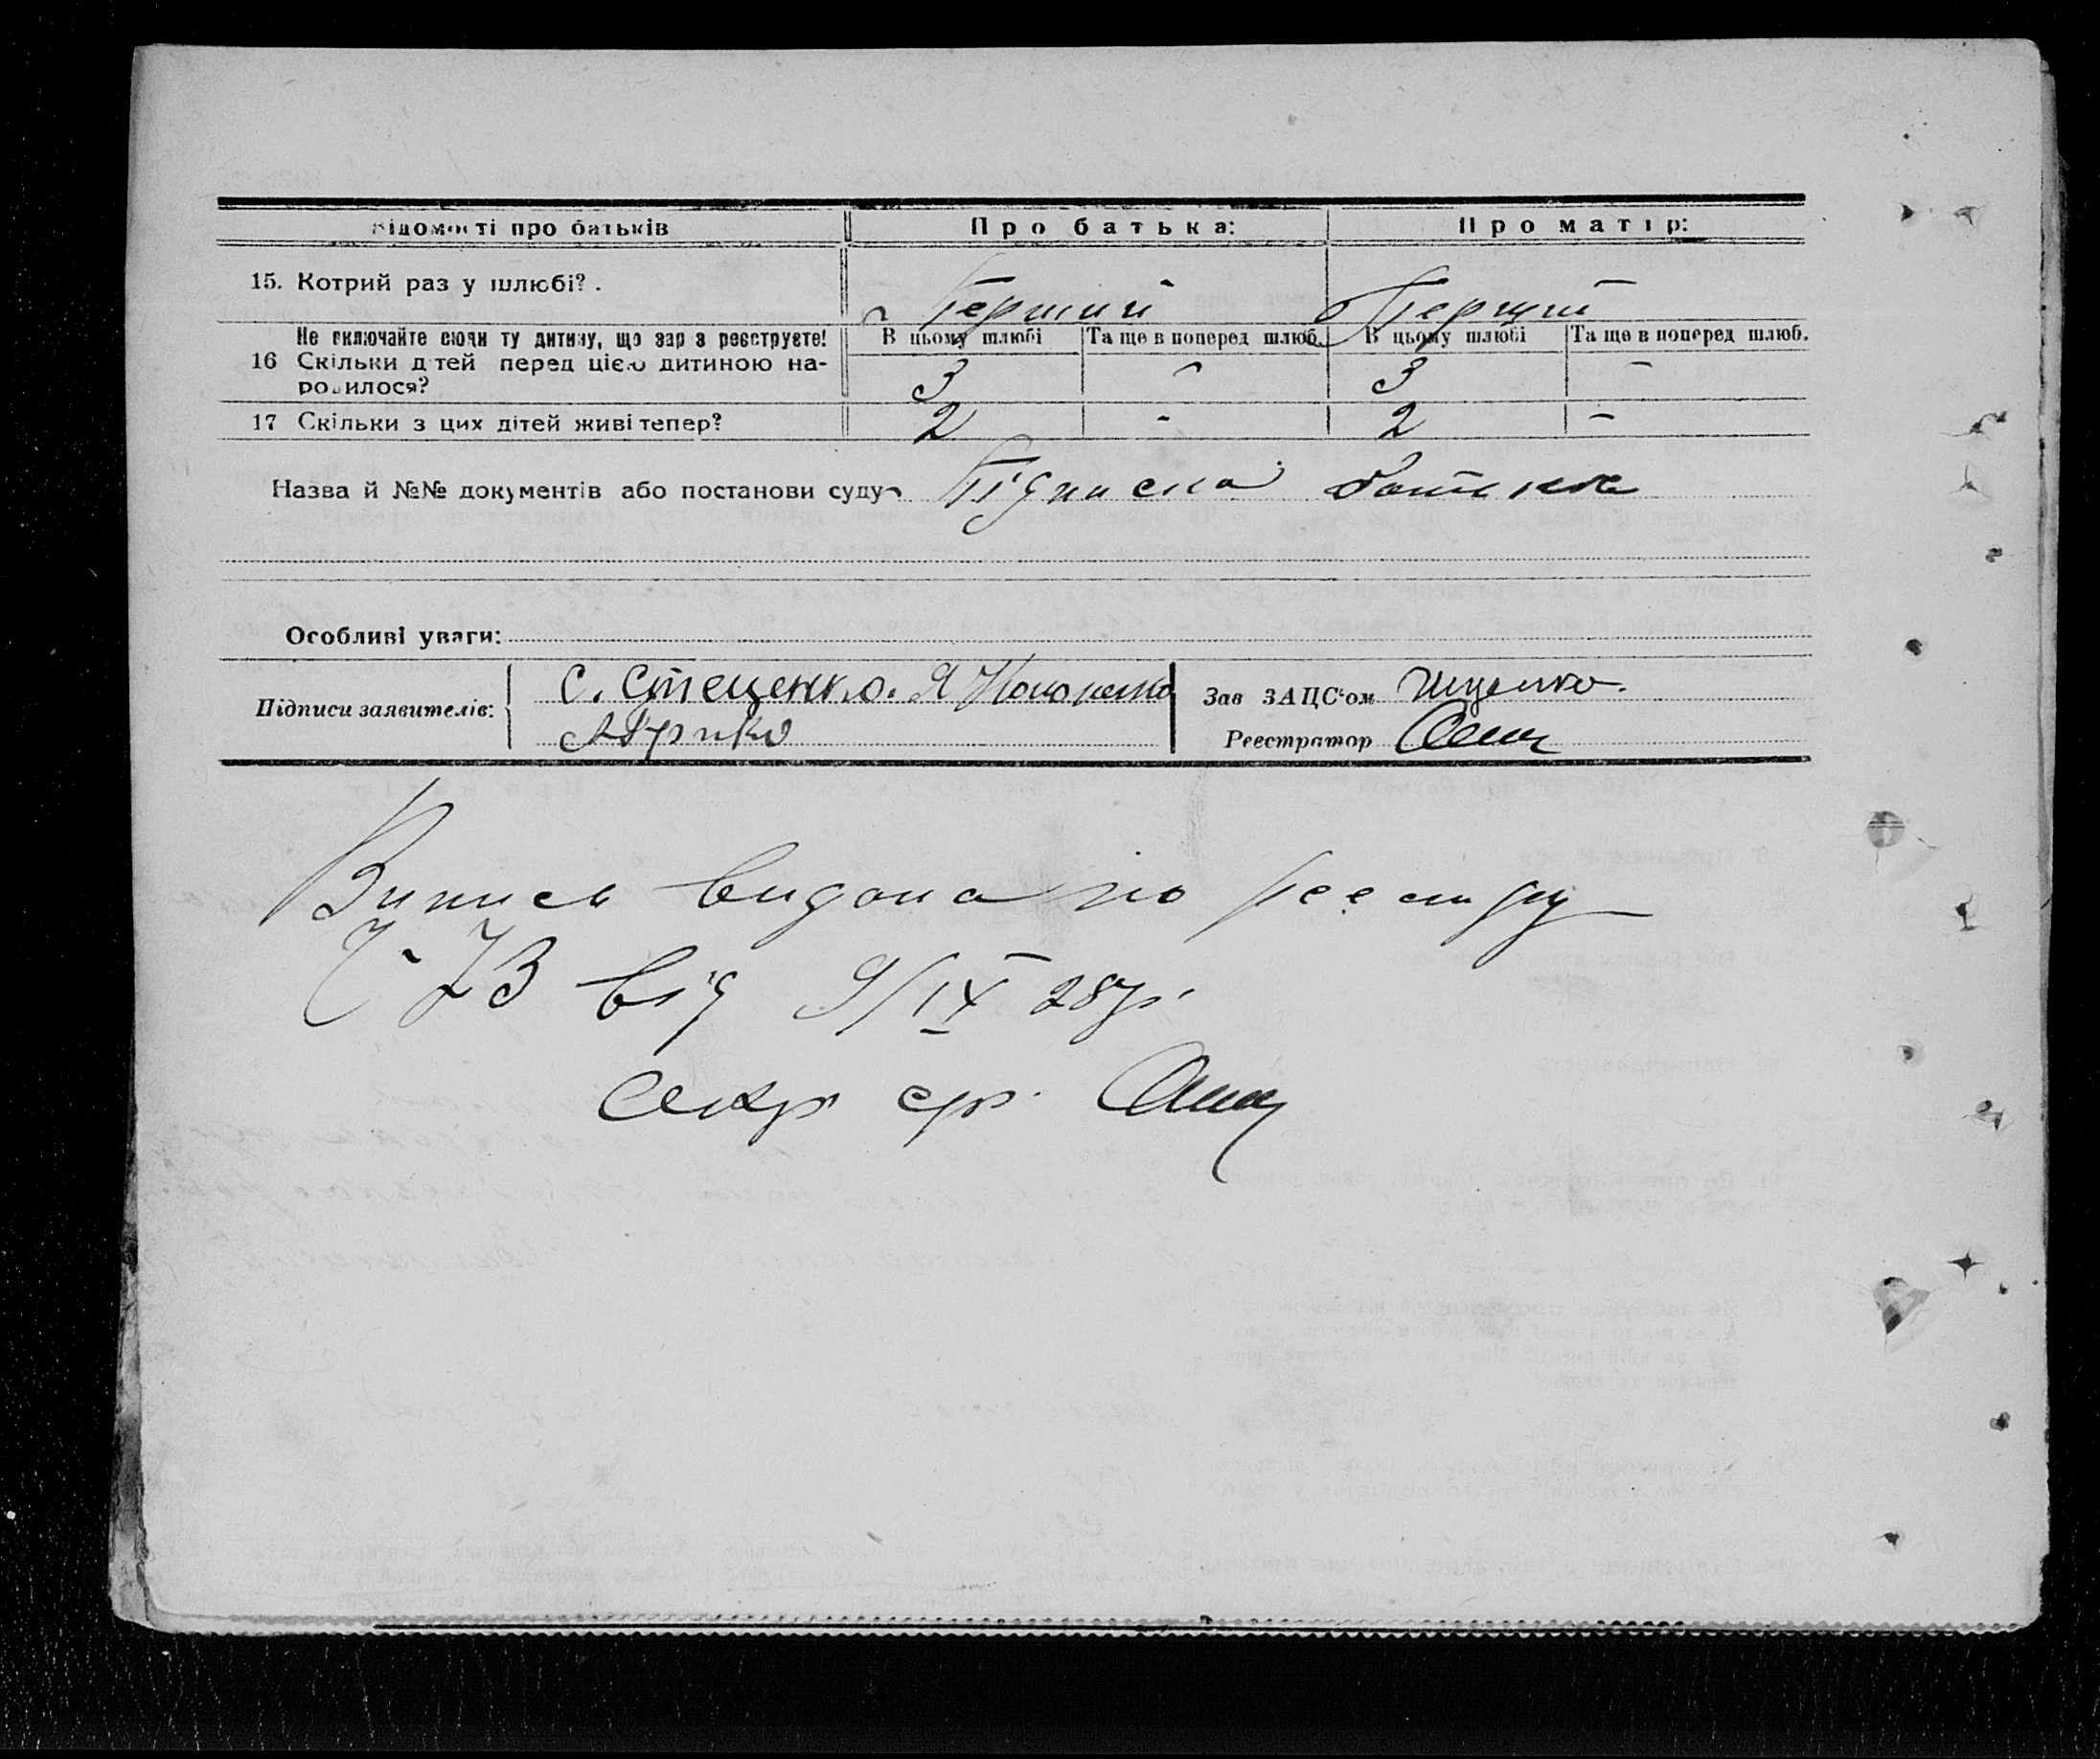 Відомості про батьків Про батька: Про матір:
15. Котрий раз у шлюбі? . Перший Перший
Не включайте сюди ту дитину, що зар з реєструєте! В цьому шлюбі Та ще в поперед шлюб. В цьому шлюбі Та ще в поперед шлюб.
16 Скільки дітей перед цією дитиною на-
родилося? 3 - 3 -
17 Скільки з цих дітей живі тепер? 2 - 2 -
Назва й №№ документів або постанови суду Підписка батька
Особливі уваги:
Підписи заявителів: С. Стеценко. Я Кононенко Зав ЗАЦС'ом Іщенко.
Реестратор
Випись видана по реєстру
Ч- 73 від 9/IX 28р.
Секр ср.